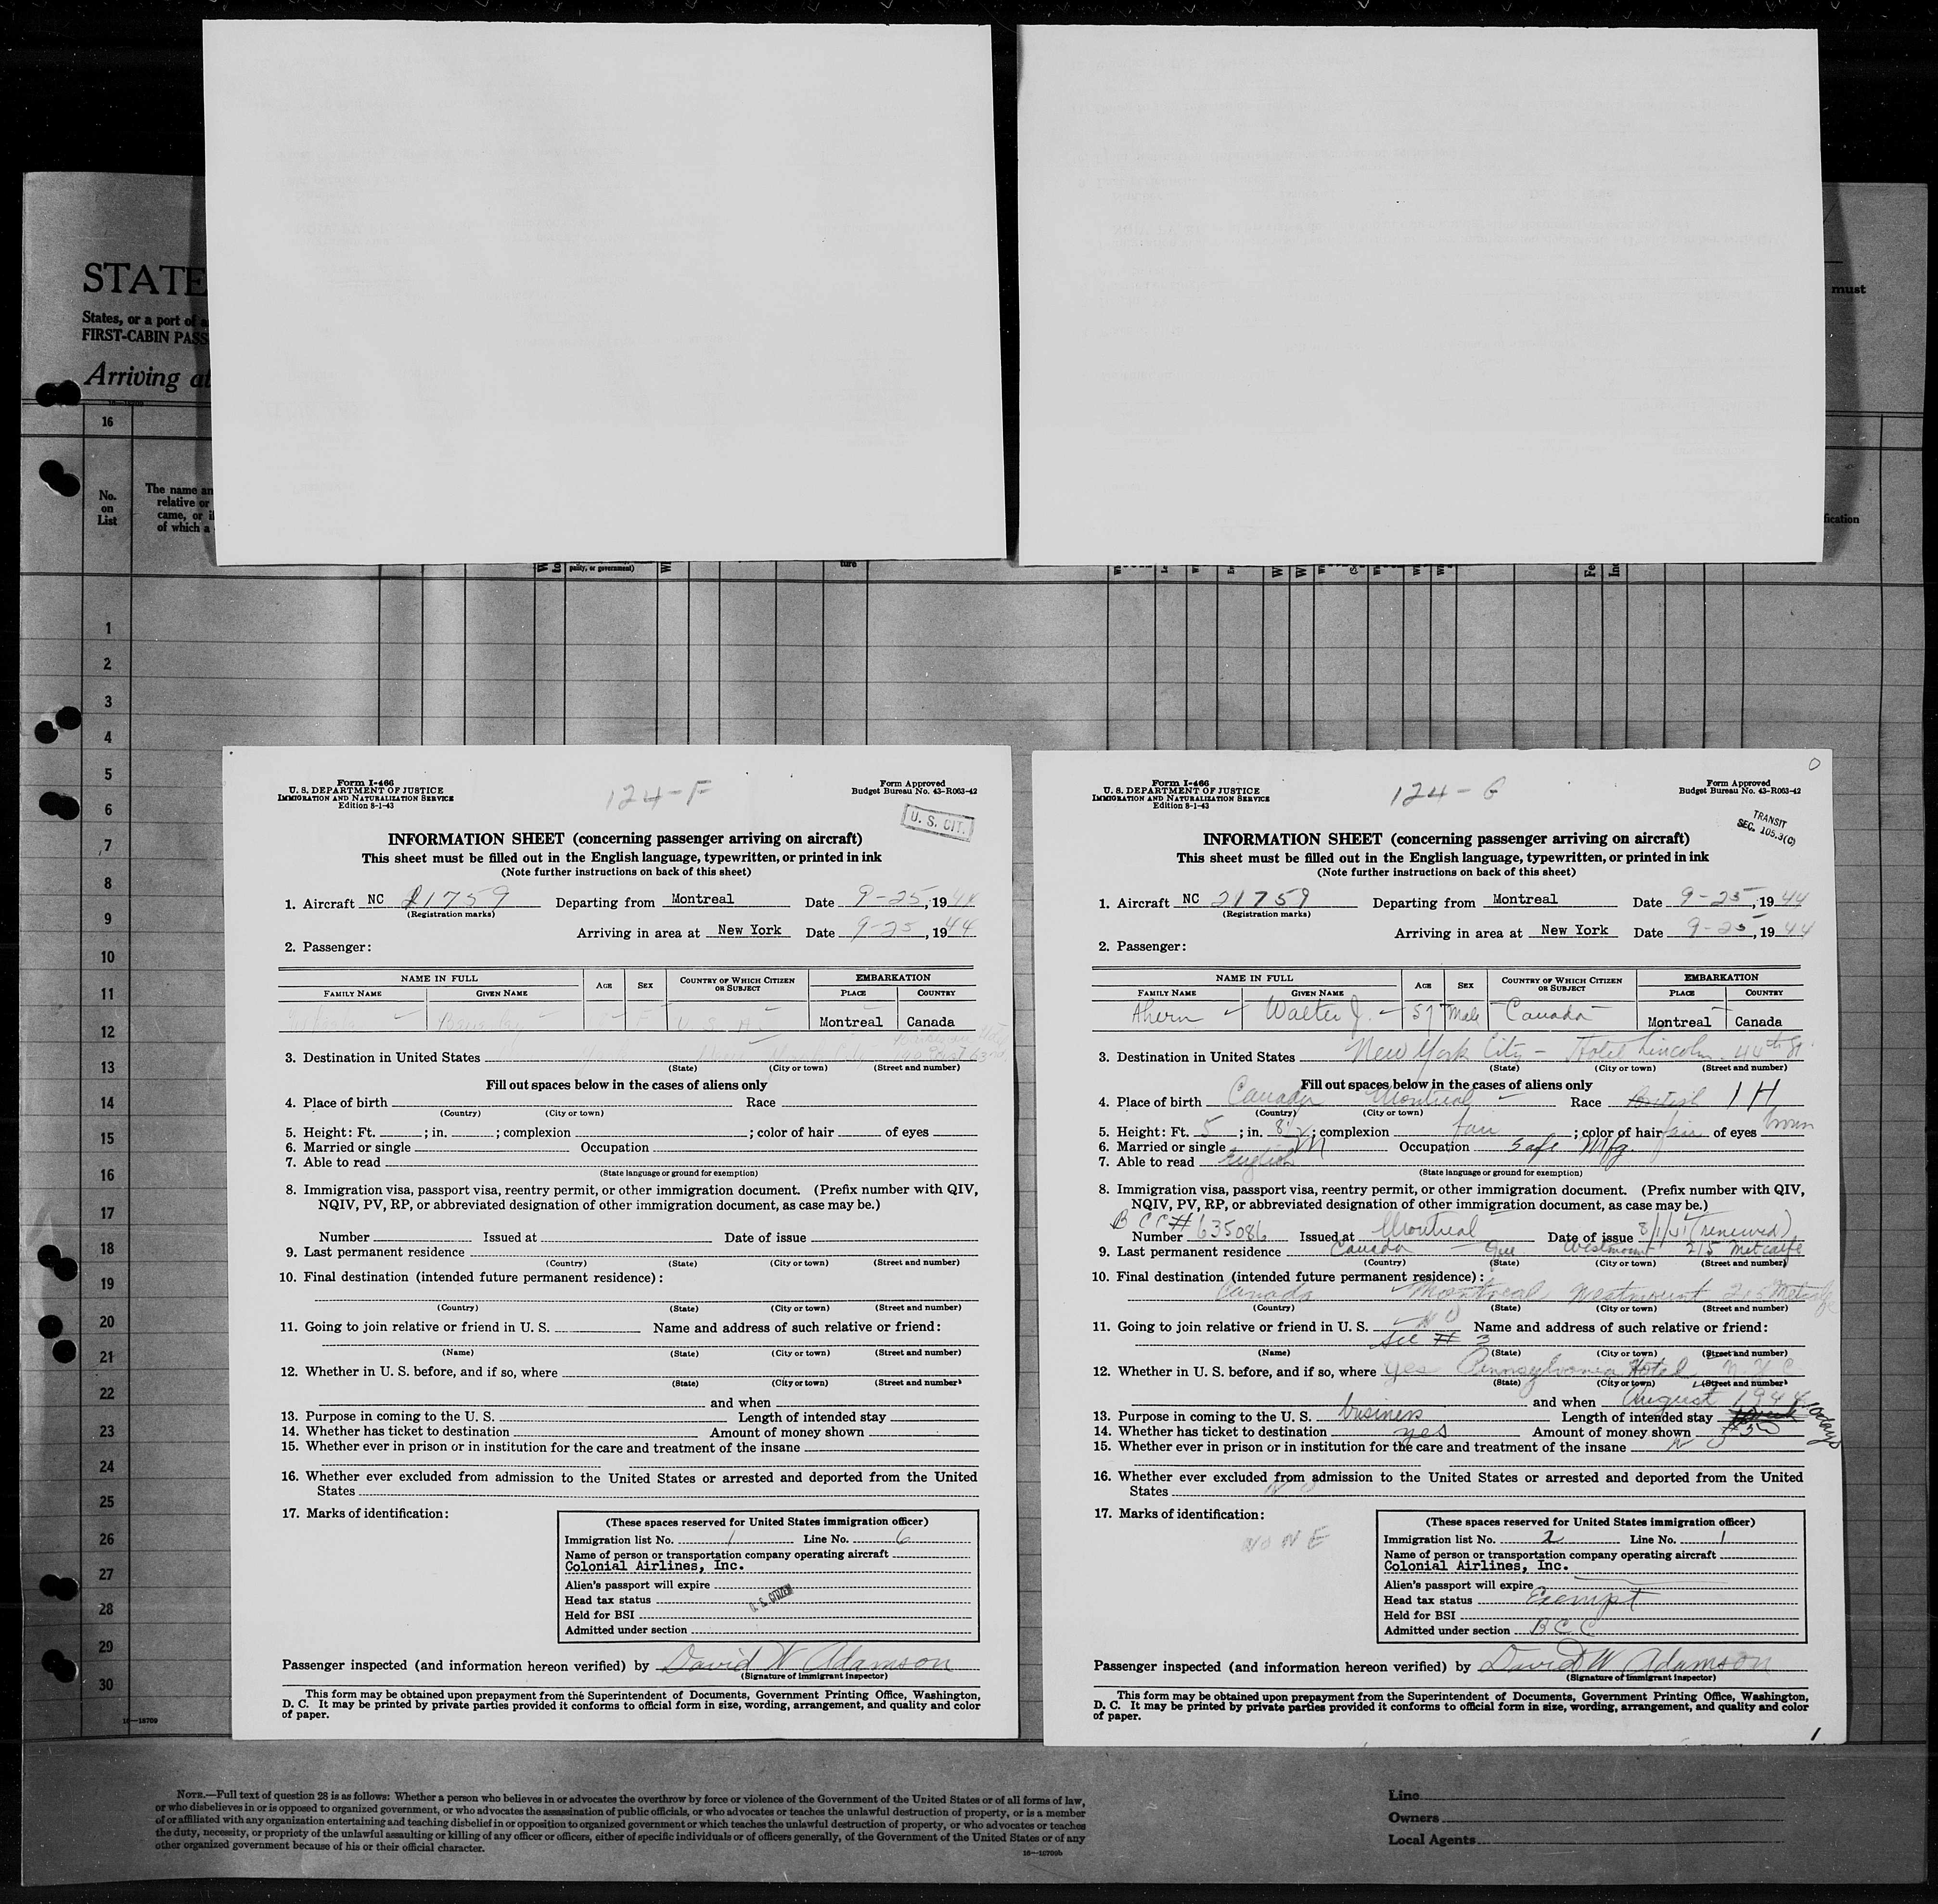 STATE
States, or a port of
FIRST-CABIN PASS
Arriving at
must
16
No.
on
List
The name an
relative or
came, or i
of which a
fication
pality, or government)
ture
1
2
3
4
5
6
7
8
9
10
11
12
13
14
15
16
17
18
19
20
21
22
23
24
25
26
27
28
29
30
16—18709
Form I-466
U. S. DEPARTMENT OF JUSTICE
IMMIGRATION AND NATURALIZATION SERVICE
Edition 8-1-43
124-F
Form Approved
Budget Bureau No. 43-R063-42
U. S. CIT.
INFORMATION SHEET (concerning passenger arriving on aircraft)
This sheet must be filled out in the English language, typewritten, or printed in ink
(Note further instructions on back of this sheet)
1. Aircraft NC 21759 Departing from Montreal Date 9-25, 1944
(Registration marks)
Arriving in area at New York Date 9-25, 1944
2. Passenger:
NAME IN FULL AGE SEX COUNTRY OF WHICH CITIZEN OR SUBJECT EMBARKATION
FAMILY NAME GIVEN NAME PLACE COUNTRY
F U. S. A Montreal Canada
3. Destination in United States
(State) (City or town) (Street and number)
Fill out spaces below in the cases of aliens only
4. Place of birth Race
(Country) (City or town)
5. Height: Ft. ; in. ; complexion ; color of hair of eyes
6. Married or single Occupation
7. Able to read
(State language or ground for exemption)
8. Immigration visa, passport visa, reentry permit, or other immigration document. (Prefix number with QIV,
NQIV, PV, RP, or abbreviated designation of other immigration document, as case may be.)
Number Issued at Date of issue
9. Last permanent residence
(Country) (State) (City or town) (Street and number)
10. Final destination (intended future permanent residence):
(Country) (State) (City or town) (Street and number)
11. Going to join relative or friend in U. S. Name and address of such relative or friend:
(Name) (State) (City or town) (Street and number)
12. Whether in U. S. before, and if so, where
(State) (City or town) (Street and number)
and when
13. Purpose in coming to the U. S. Length of intended stay
14. Whether has ticket to destination Amount of money shown
15. Whether ever in prison or in institution for the care and treatment of the insane
16. Whether ever excluded from admission to the United States or arrested and deported from the United
States
17. Marks of identification:
(These spaces reserved for United States immigration officer)
Immigration list No. 1 Line No. 6
Name of person or transportation company operating aircraft
Colonial Airlines, Inc.
Alien's passport will expire
Head tax status U. S. CITIZEN
Held for BSI
Admitted under section
Passenger inspected (and information hereon verified) by David W Adamson
(Signature of immigrant inspector)
This form may be obtained upon prepayment from the Superintendent of Documents, Government Printing Office, Washington,
D. C. It may be printed by private parties provided it conforms to official form in size, wording, arrangement, and quality and color
of paper.
Form I-466
U. S. DEPARTMENT OF JUSTICE
IMMIGRATION AND NATURALIZATION SERVICE
Edition 8-1-43
124-G
Form Approved
Budget Bureau No. 43-R063-42
TRANSIT
SEC. 105.3(C)
INFORMATION SHEET (concerning passenger arriving on aircraft)
This sheet must be filled out in the English language, typewritten, or printed in ink
(Note further instructions on back of this sheet)
1. Aircraft NC 21759 Departing from Montreal Date 9-25, 1944
(Registration marks)
Arriving in area at New York Date 9-25, 1944
2. Passenger:
NAME IN FULL AGE SEX COUNTRY OF WHICH CITIZEN OR SUBJECT EMBARKATION
FAMILY NAME GIVEN NAME PLACE COUNTRY
Ahern Walter J. 57 Male Canada Montreal Canada
3. Destination in United States New York City - Hotel Lincoln - 44th St
(State) (City or town) (Street and number)
Fill out spaces below in the cases of aliens only
4. Place of birth Canada Montreal Race British IH
(Country) (City or town)
5. Height: Ft. 5 ; in. 8½ ; complexion fair ; color of hair fair of eyes brown
6. Married or single M Occupation Safe Mfg.
7. Able to read English
(State language or ground for exemption)
8. Immigration visa, passport visa, reentry permit, or other immigration document. (Prefix number with QIV,
NQIV, PV, RP, or abbreviated designation of other immigration document, as case may be.)
B C C #
Number 635086 Issued at Montreal Date of issue (renewed)
9. Last permanent residence Canada Que Westmount 215 Metcalfe
(Country) (State) (City or town) (Street and number)
10. Final destination (intended future permanent residence):
Canada Montreal Westmount 215 Metcalfe
(Country) (State) (City or town) (Street and number)
11. Going to join relative or friend in U. S. NO Name and address of such relative or friend:
See # 3
(Name) (State) (City or town) (Street and number)
12. Whether in U. S. before, and if so, where yes Pennsylvania Hotel, N.Y.C
(State) (City or town) (Street and number)
and when August 1944
13. Purpose in coming to the U. S. business Length of intended stay 10 days
14. Whether has ticket to destination yes Amount of money shown $50
15. Whether ever in prison or in institution for the care and treatment of the insane NO
16. Whether ever excluded from admission to the United States or arrested and deported from the United
States NO
17. Marks of identification:
NONE
(These spaces reserved for United States immigration officer)
Immigration list No. 2 Line No. 1
Name of person or transportation company operating aircraft
Colonial Airlines, Inc.
Alien's passport will expire
Head tax status Exempt
Held for BSI
Admitted under section B C C
Passenger inspected (and information hereon verified) by David W Adamson
(Signature of immigrant inspector)
This form may be obtained upon prepayment from the Superintendent of Documents, Government Printing Office, Washington,
D. C. It may be printed by private parties provided it conforms to official form in size, wording, arrangement, and quality and color
of paper.
1
NOTE.—Full text of question 28 is as follows: Whether a person who believes in or advocates the overthrow by force or violence of the Government of the United States or of all forms of law,
or who disbelieves in or is opposed to organized government, or who advocates the assassination of public officials, or who advocates or teaches the unlawful destruction of property, or is a member
of or affiliated with any organization entertaining and teaching disbelief in or opposition to organized government or which teaches the unlawful destruction of property, or who advocates or teaches
the duty, necessity, or propriety of the unlawful assaulting or killing of any officer or officers, either of specific individuals or of officers generally, of the Government of the United States or of any
other organized government because of his or their official character.
16—18709b
Line
Owners
Local Agents